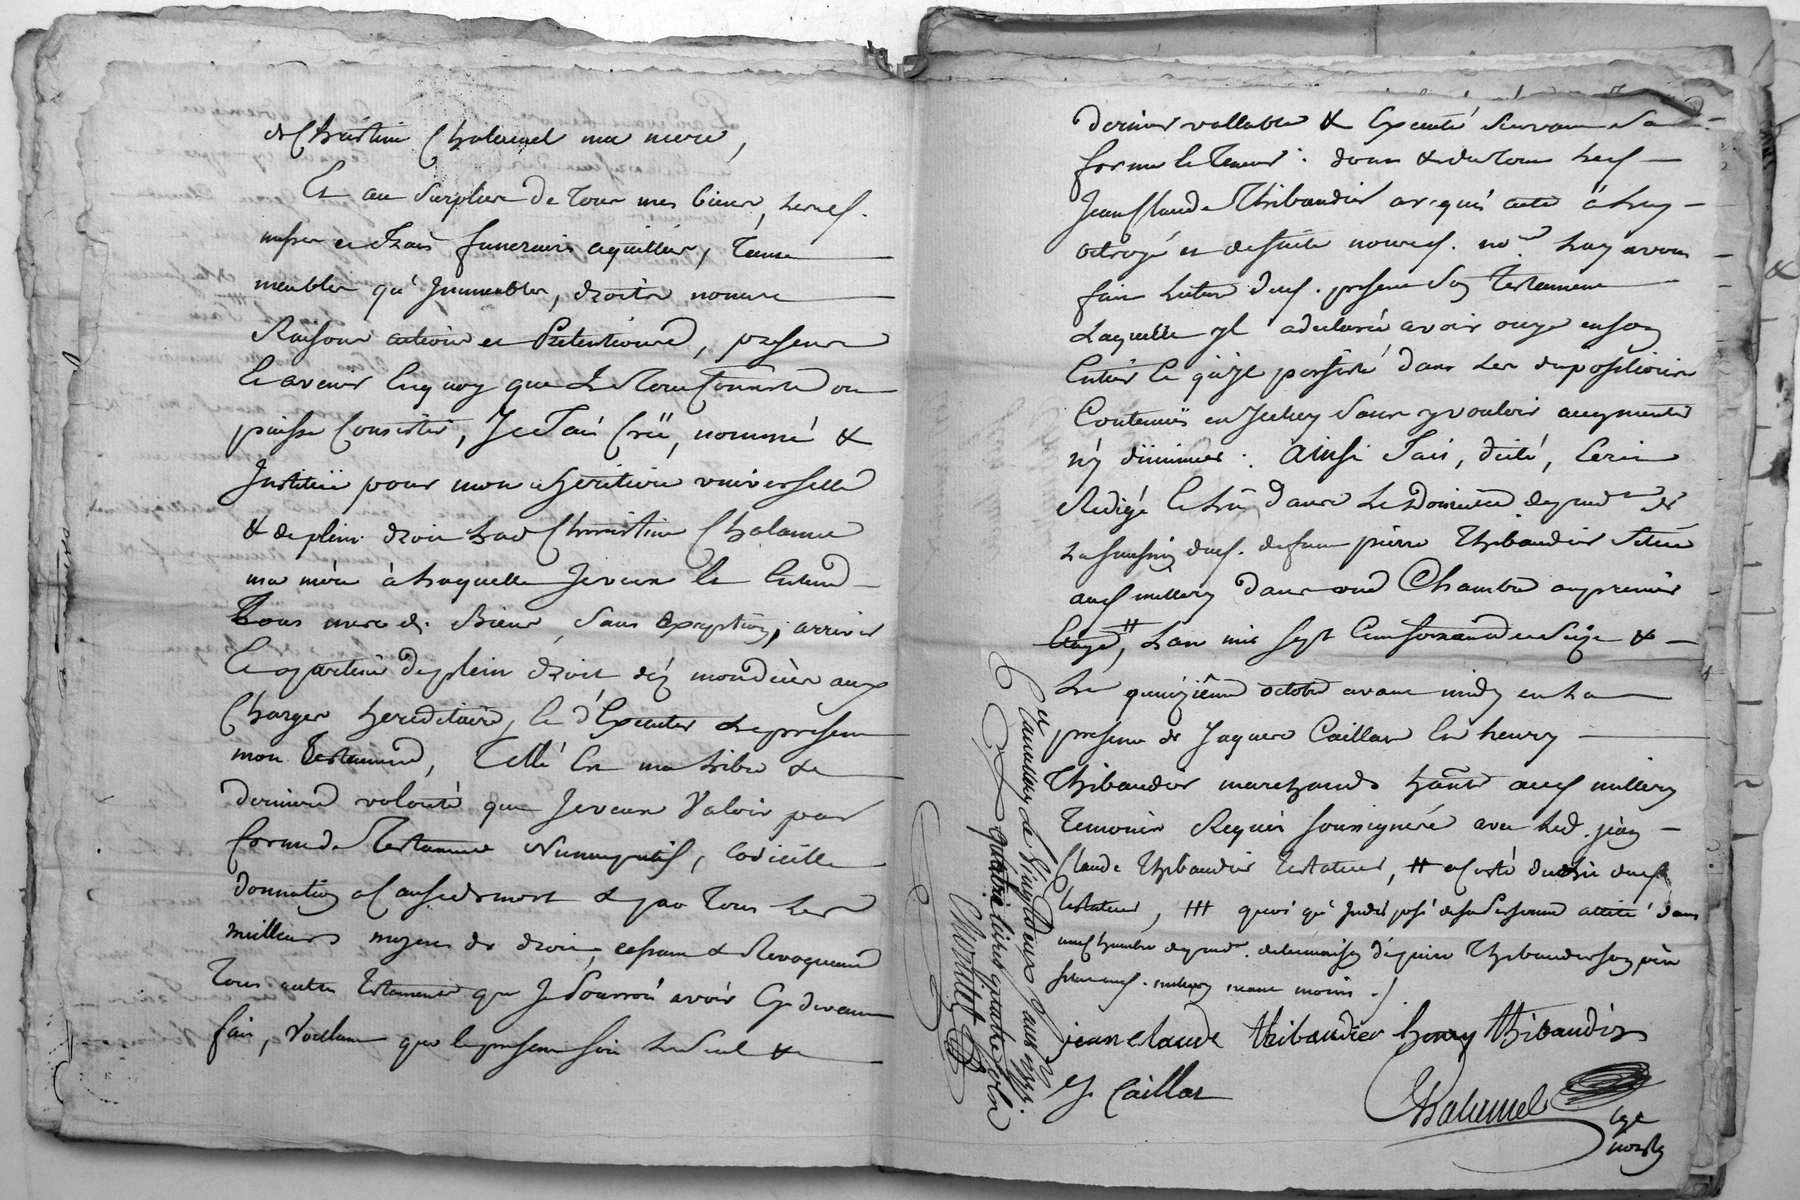 de Christine Chalamel ma mere,
Et au surplus de tous mes biens,
et frais funeraires aquittés, tant
meubles qu'Immeubles, droits noms
Raisons actions et Pretentions, presens
& avenir en quoy que le tout consiste ou
puisse Consister, Je fais Créé, nommé &
Institüé pour mon heritiere universelle
& de plein droit lad Christine Chalamel
ma mère à laquelle Je veux &
tous mesd. Biens, sans exception, arriver
& apartenir de plein droit déz mon décès aux
Charges hereditaires, & d'Executer le present
mon testament, Telle est ma libre &
derniere volonté que Je veux Valoir par
forme de Testament Nuncupatif, Codicille
donnation a Cause de mort & par tous les
meilleurs moyens de droit, cessant & Revoquant
tous autres testaments que Je pourrois avoir Cy devant
fait, Voulant que le present soit le seul &
dernier vallable & Executé suivant sa
forme & teneur : dont & du tout led
Jean Claude Thibaudier a requis acte à luy
octroyé et de suite nousd. no.re luy avons
fait lecture dud. present son testament
Laquelle yl a declaré avoir ouye en son
entier & qu'yl persiste dans les dispositions
Contenuës en Iceluy sans y vouloir augmenter
n'y diminuer : Ainsi Fait, dicté,
Redigé & lû dans le Domicile
dud. defunt pierre Thibaudier Situé
aud millery dans une Chambre au premier
Etage ++, l'an mil sept Cent soixante seize &
Le quinzième octobre avant midy en la
presence de Jaques Caillat & henry
Thibaudier marchands hants aud millery
temoins Requis soussignés avec led. jean
Claude Thibaudier testateur, ++ a Costé du lit dud
testateur, +++ quoi qu'Indisposé de sa Personne allité dans
une chambre de la maison de pierre Thibaudier son père
aud. millery neant moins ./.
jean claude thibaudier henry thibaudier
J Caillat Chalumel
nore
Controllé
le Vingt Deux 1776.
quatre livres quatre sols